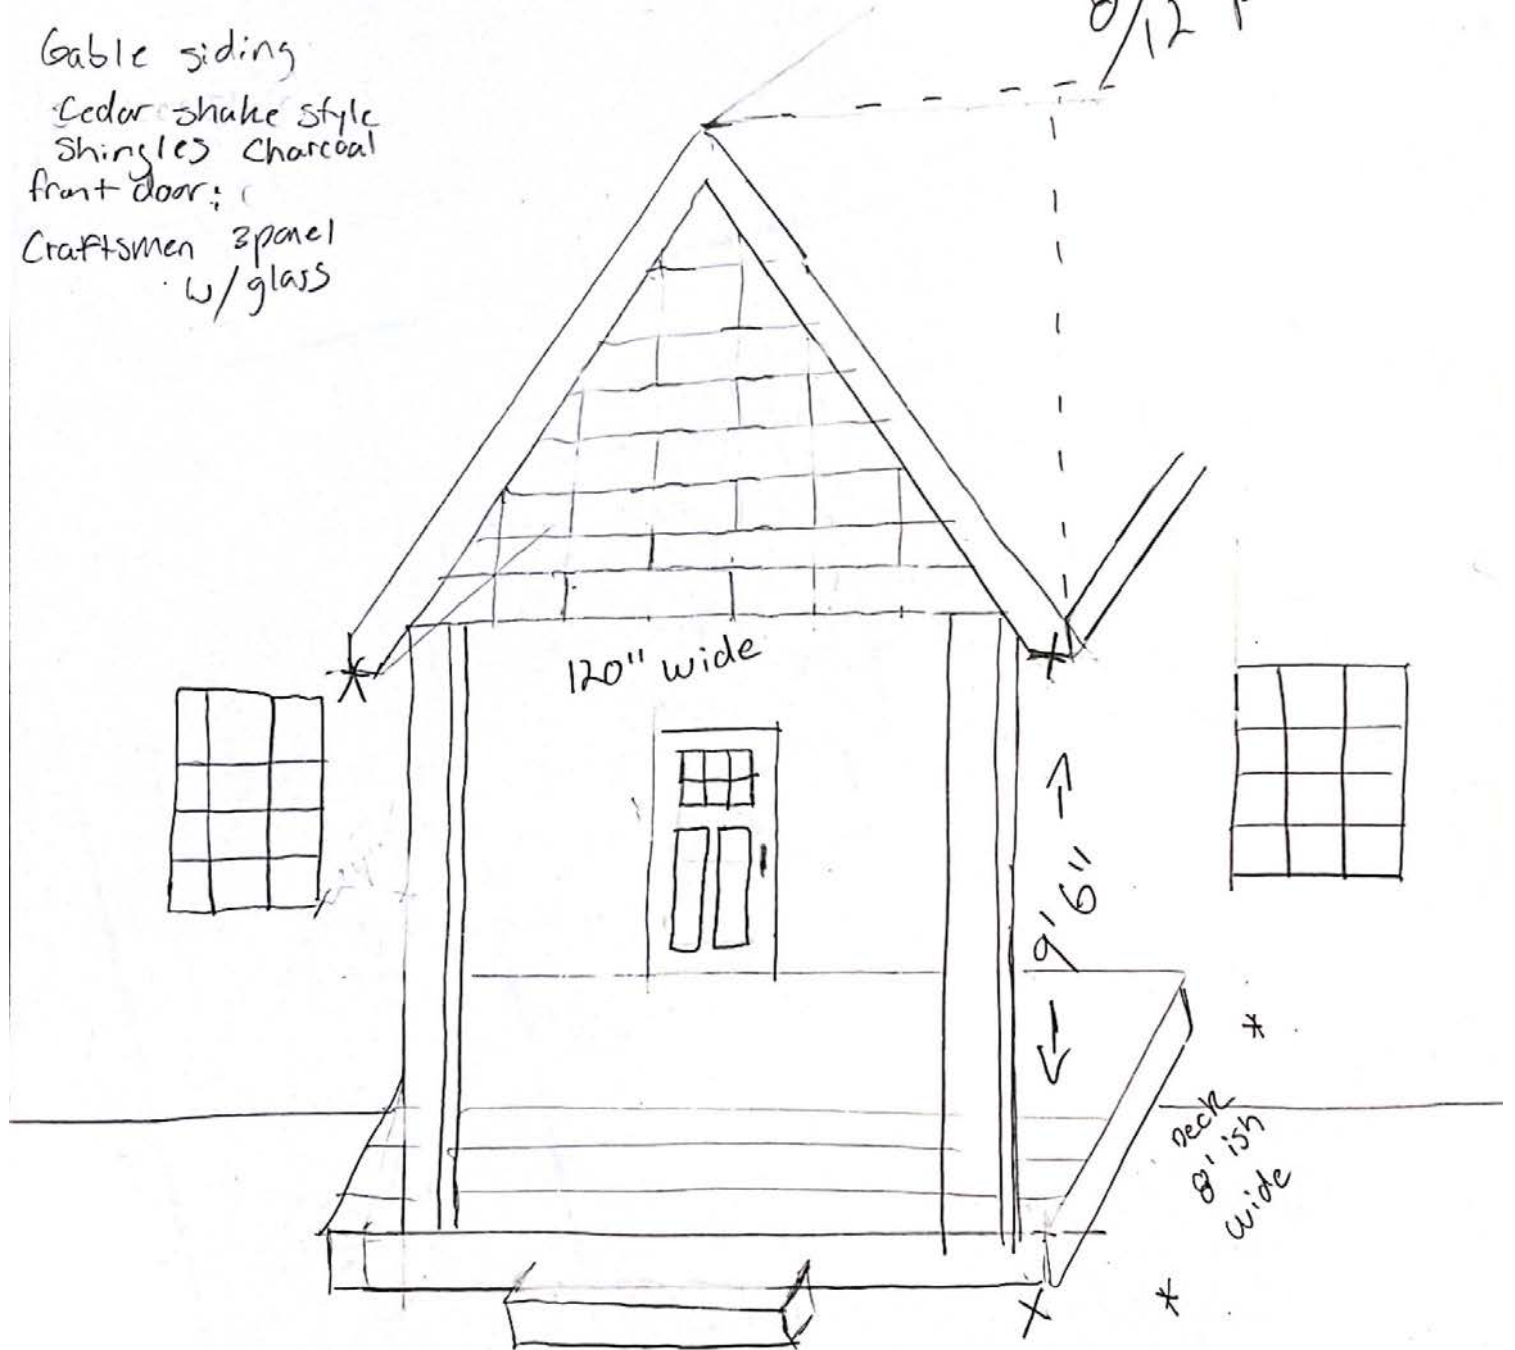 Gable siding
Cedar shake style
Shingles Charcoal
front door:
Craftsmen 3panel
w/glass
8/12
120" wide
9' 6"
Deck
8' ish
wide